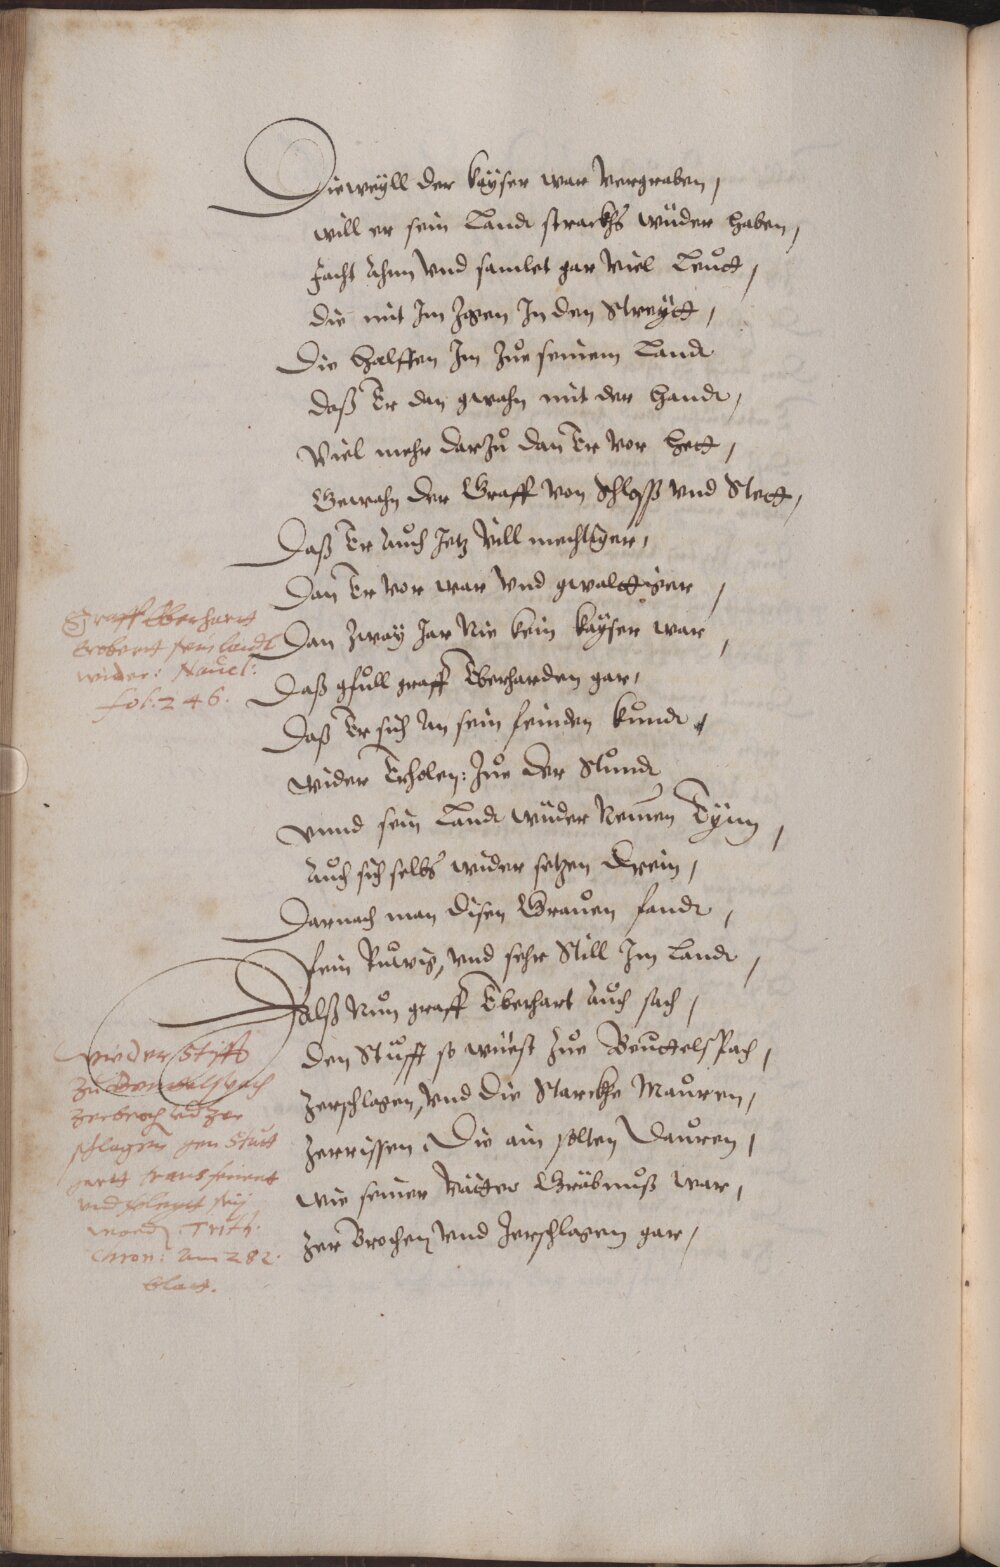 Dieweyll der Kayser war Vergraben,
will er sein Landt stracks wüder haben,
facht Ahnn Vnd samlet gar Viel Leütt,
die mit Im Zogen In den Streytt,
Die halffen Im Zue seinem Landt
daß Er dan gwahn mit der handt,
Viel mehr darzu dan Er Vor hett,
Gewahn der Graff Von Schlosß Vnd Stett,
Daß Er Auch Jetz Vill mechtiger,
Dan Er Vor war Vnd gwalttiger,
Dan Zway Jar Nie kein Kayser war,
Daß gfull graff Eberharden gar,
Daß Er sich An sein feinden kundt,
wider Erholen: Zue der Stundt
Vnnd sein Landt wüder Nemen Eynn,
Auch sich selbs wider setzen Drein,
Darnach man disen Grauen fandt,
fein Ruwig, Vnd sehr Still Im Landt,
Alß Nun graff Eberhart Auch sach,
den Stüfft so wüest Zue Beuttelspach,
Zerschlagen, Vnd die Starckhe Mauren,
Zerrissen, Die ain solten Dauren,
wie seiner Vätter Gräbnuß war,
Zer Brochen Vnd Zerschlagen gar,
Graff Eberhartt
Erobert sein landt
wider: Nauel:
fol: 246.
der Stifft
zu Beuttelspach
zerbroch vnd zer
schlagen gen Stutt
gartt transferiert
vnd
Trith.
Chron: Am 282.
blatt.